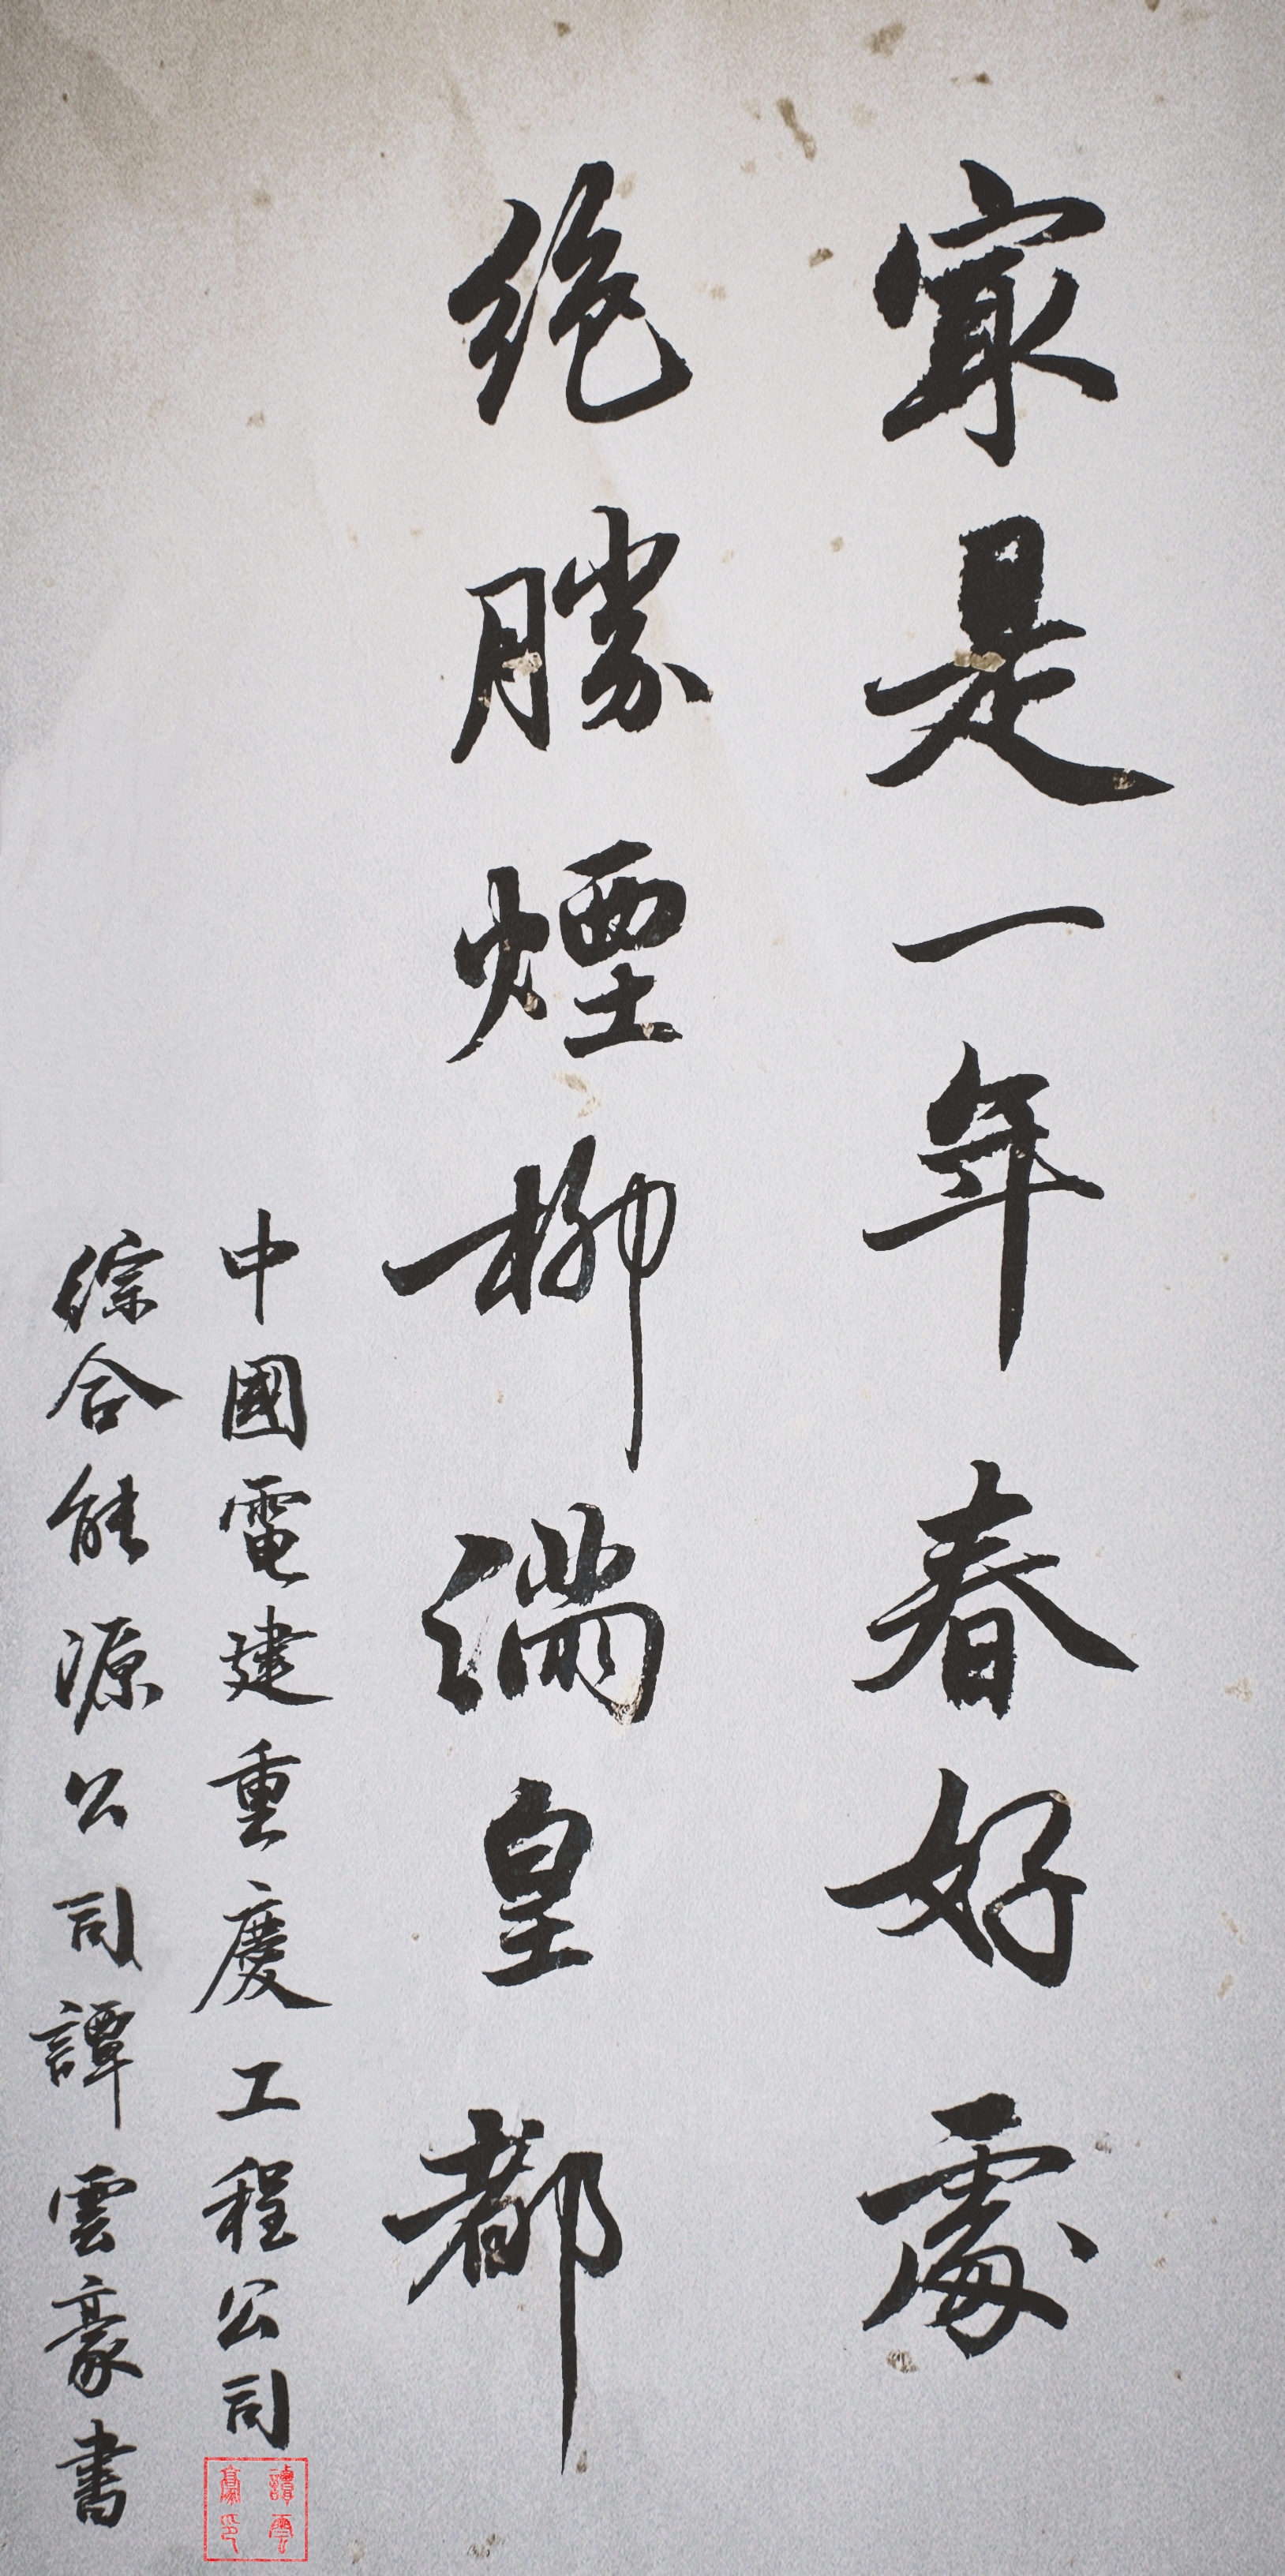 冣是一年春好處
絶勝煙柳滿皇都
中國電建重慶工程公司
綜合能源公司譚雲豪書
譚雲豪印